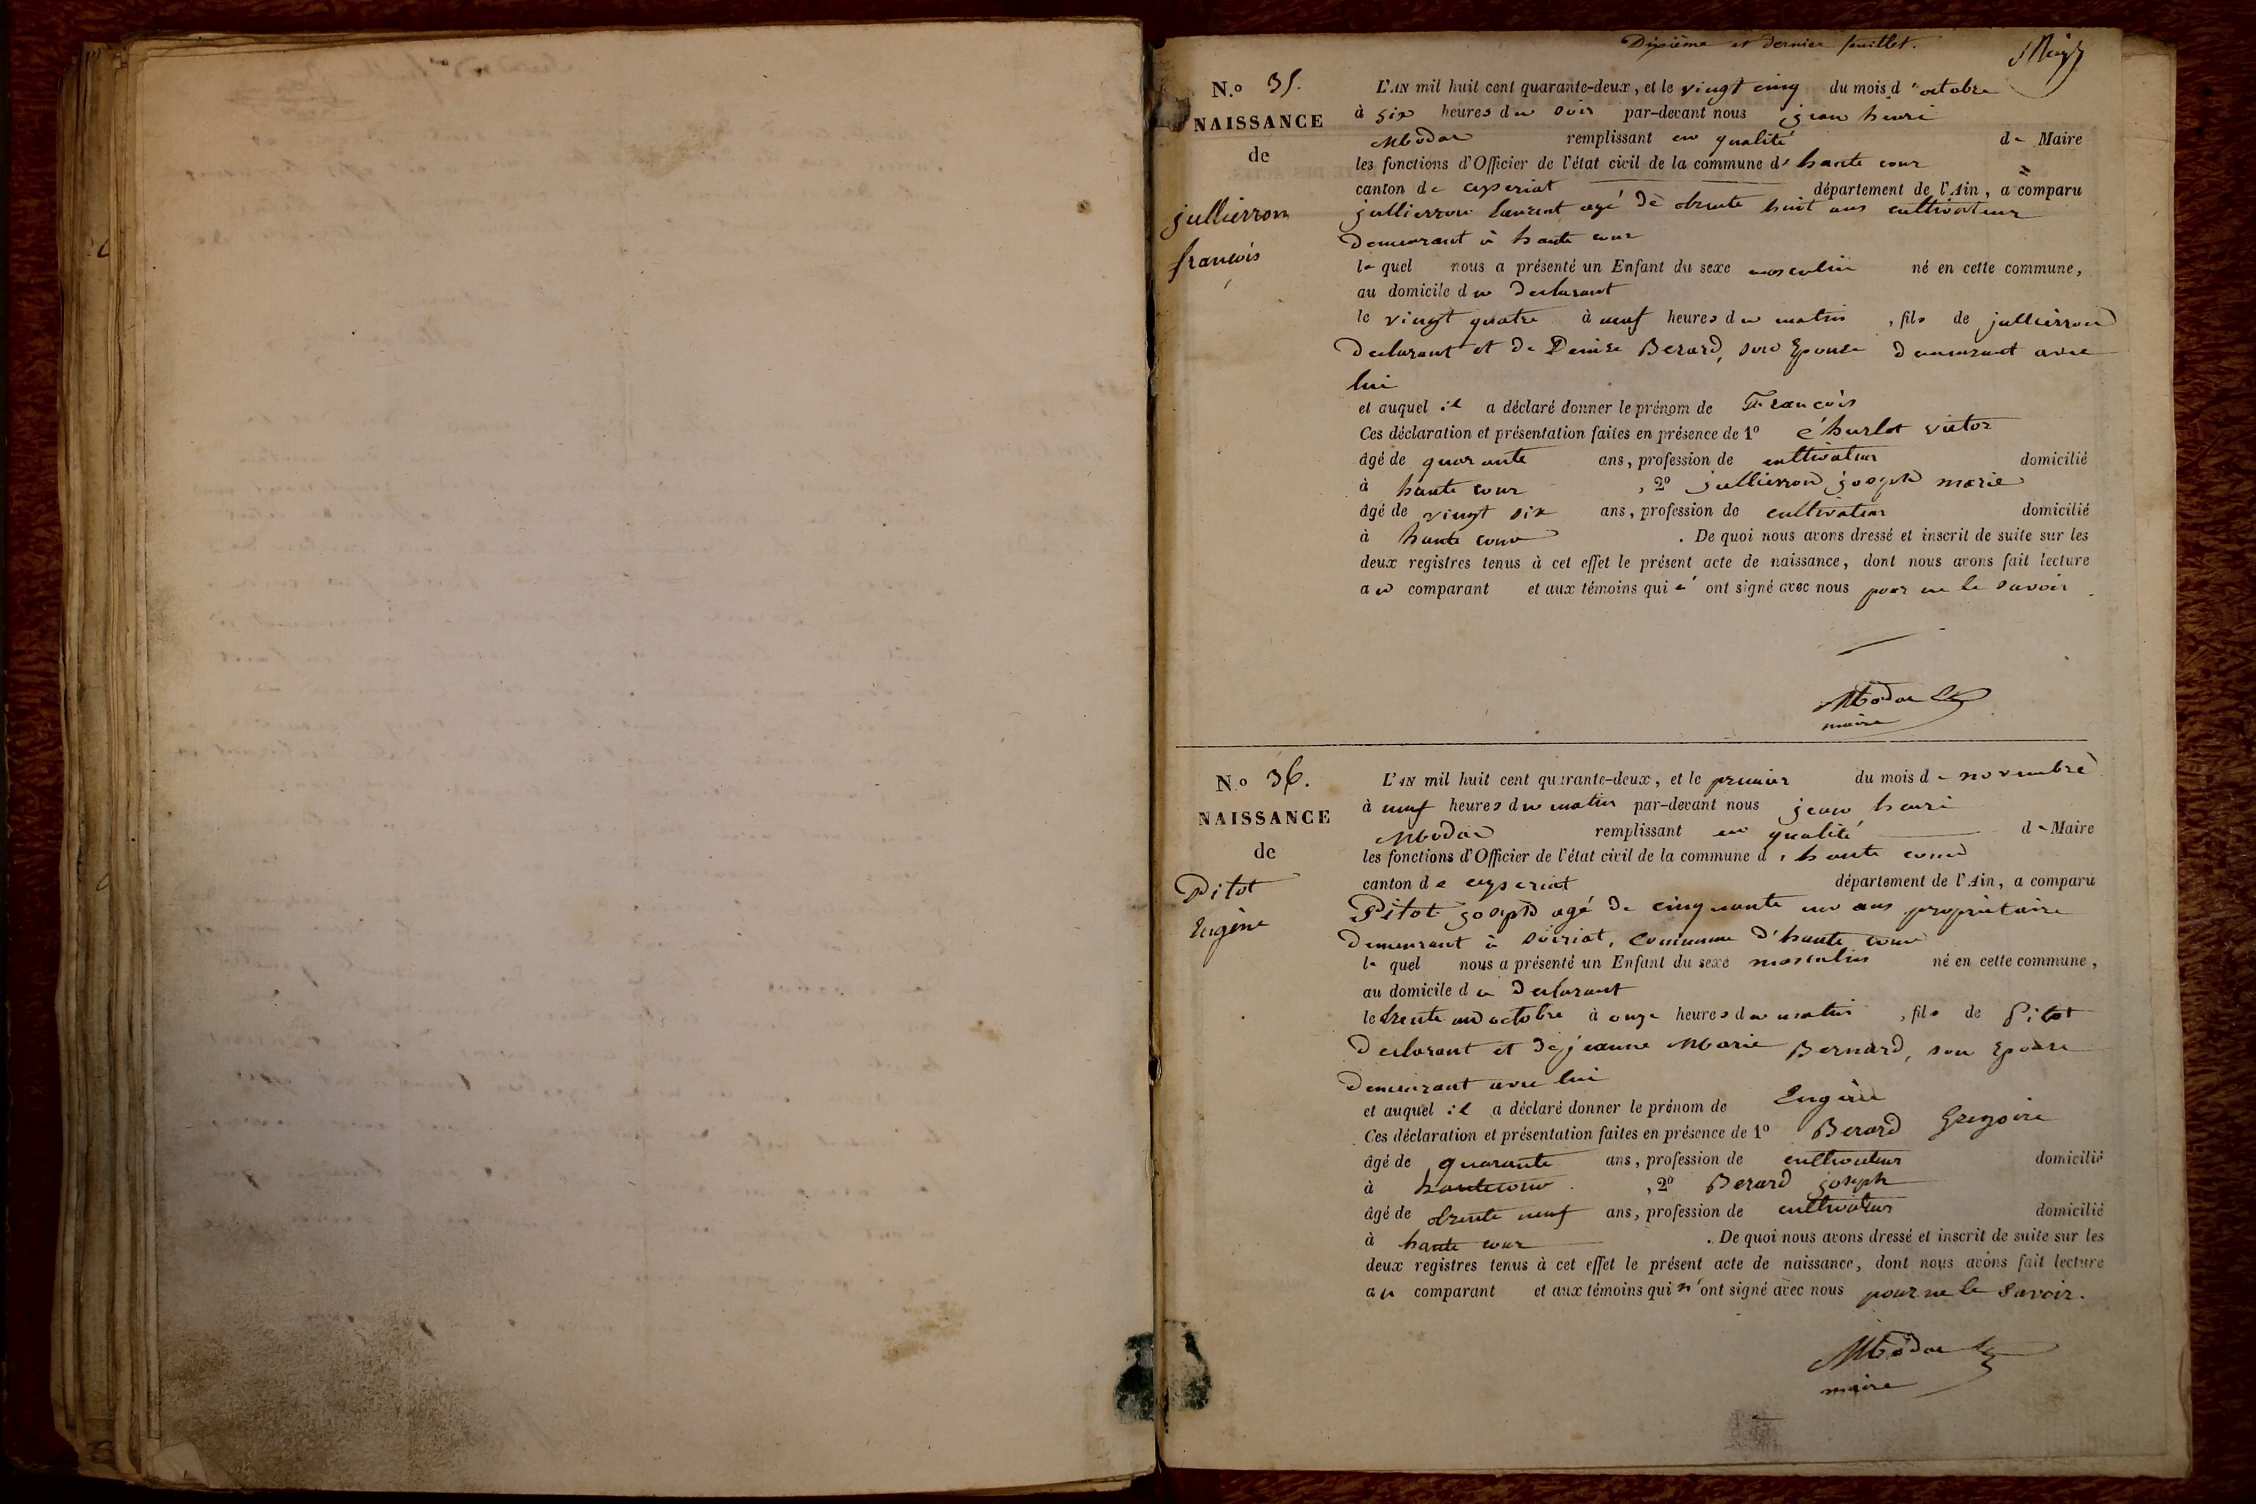 Dixième et dernier feuillet.
N.o 35.
NAISSANCE
de
jullierron
françois
L'AN mil huit cent quarante-deux, et le vingt cinq du mois d'octobre
à six heures du soir par-devant nous jean henri
Mbodar remplissant en qualité de Maire
les fonctions d'Officier de l'état civil de la commune d'haute cour
canton de ceyseriat département de l'Ain, a comparu
jullierron laurent agé de trente huit ans cultivateur
demeurant à haute cour
le quel nous a présenté un Enfant du sexe masculin né en cette commune,
au domicile du declarant
le vingt quatre à neuf heures du matin, fils de jullierron
declarant et de Denise Berard, son Epouse demeurant avec
lui
et auquel il a déclaré donner le prénom de François
Ces déclaration et présentation faites en présence de 1o Churlot victor
âgé de quarante ans, profession de cultivateur domicilié
à haute cour, 2o jullierron joseph marie
âgé de vingt six ans, profession de cultivateur domicilié
à haute cour. De quoi nous avons dressé et inscrit de suite sur les
deux registres tenus à cet effet le présent acte de naissance, dont nous avons fait lecture
au comparant et aux témoins qui n'ont signé avec nous pour ne le savoir.
Mbodar
maire
N.o 36.
NAISSANCE
de
Pitot
Eugène
L'AN mil huit cent quarante-deux, et le premier du mois de novembre
à neuf heures du matin par-devant nous jean henri
Mbodar remplissant en qualité de Maire
les fonctions d'Officier de l'état civil de la commune d'haute cour
canton de ceyseriat département de l'Ain, a comparu
Pitot joseph agé de cinquante un ans propriétaire
demeurant à soiriat, commune d'haute cour
le quel nous a présenté un Enfant du sexe masculin né en cette commune,
au domicile du declarant
le trente un octobre à onze heures du matin, fils de Pitot
declarant et de jeanne Marie Bernard, son Epouse
demeurant avec lui
et auquel il a déclaré donner le prénom de Eugène
Ces déclaration et présentation faites en présence de 1o Berard Gregoire
âgé de quarante ans, profession de cultivateur domicilié
à hautecour, 2o Berard joseph
âgé de trente neuf ans, profession de cultivateur domicilié
à haute cour. De quoi nous avons dressé et inscrit de suite sur les
deux registres tenus à cet effet le présent acte de naissance, dont nous avons fait lecture
au comparant et aux témoins qui n'ont signé avec nous pour ne le savoir.
Mbodar
maire